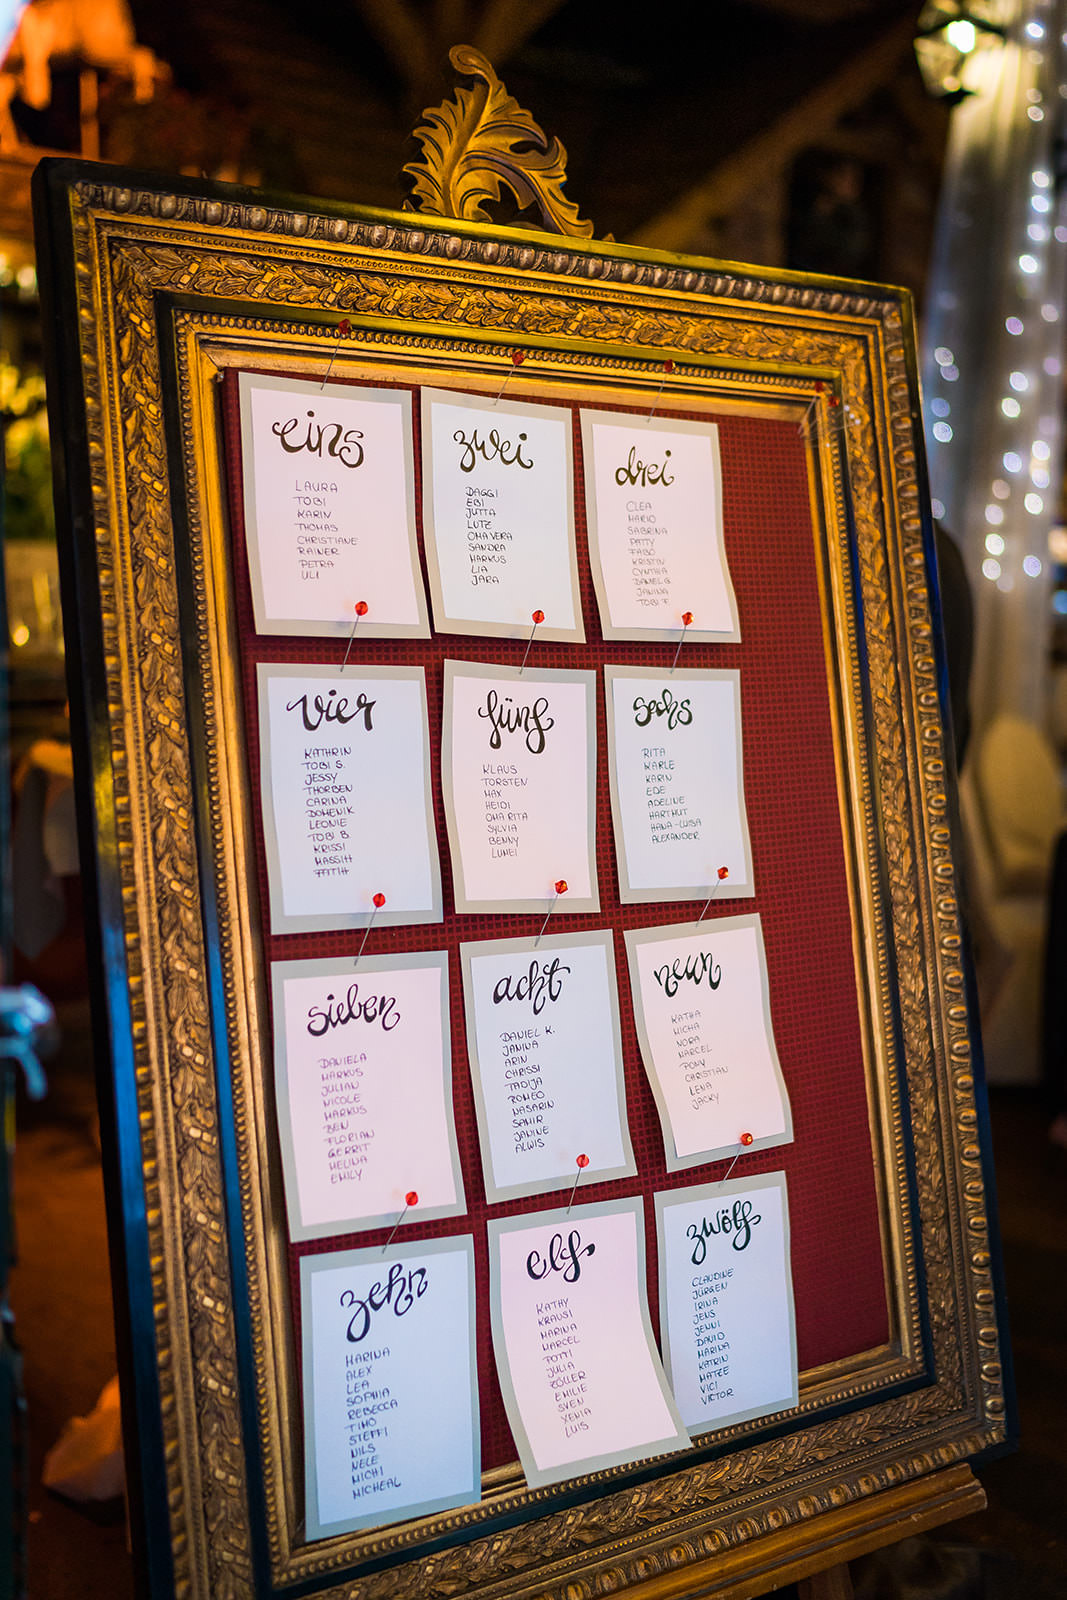 eins
LAURA
TOBI
KARIN
THOMAS
CHRISTIANE
RAINER
PETRA
ULI
zwei
DAGGI
EBI
JUTTA
LUTZ
OMA VERA
SANDRA
MARKUS
LIA
JARA
drei
CLEA
MARIO
SABRINA
PATTY
FABO
KRISTIN
CYNTHIA
DANIEL G.
JANINA
TOBI F.
vier
KATHRIN
TOBI S.
JESSY
THORBEN
CARINA
DOMENIK
LEONIE
TOBI B.
KRISSI
MASSIH
FATIH
fünf
KLAUS
TORSTEN
MAX
HEIDI
OMA RITA
SYLVIA
BENNY
LUMEI
sechs
RITA
KARLE
KARIN
EDE
ADELINE
HARTMUT
HANA-LUISA
ALEXANDER
sieben
DANIELA
MARKUS
JULIAN
NICOLE
MARKUS
BEN
FLORIAN
GERRIT
MELINA
EMILY
acht
DANIEL K.
JANINA
ARIN
CHRISSI
TADIJA
ROMEO
NASARIN
SAMIR
JANINE
ALWIS
neun
KATHA
MICHA
NORA
MARCEL
PONY
CHRISTIAN
LENA
JACKY
zehn
MARINA
ALEX
LEA
SOPHIA
REBECCA
TIMO
STEFFI
NILS
NELE
MICHI
MICHEAL
elf
KATHY
KRAUSI
MARINA
MARCEL
POTTI
JULIA
ZÖLLER
EMILIE
SVEN
XENIA
LUIS
zwölf
CLAUDINE
JÜRGEN
IRINA
JENS
JENNI
DAVID
MARINA
KATRIN
MATZE
VICI
VICTOR